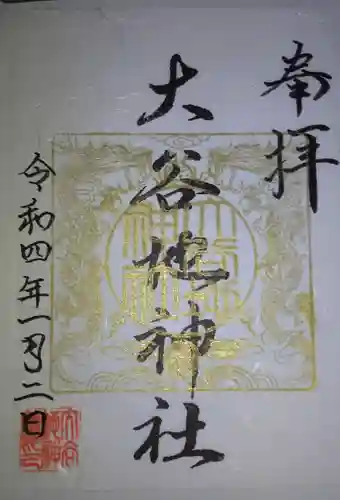 奉拝
大谷地神社
令和四年一月二日